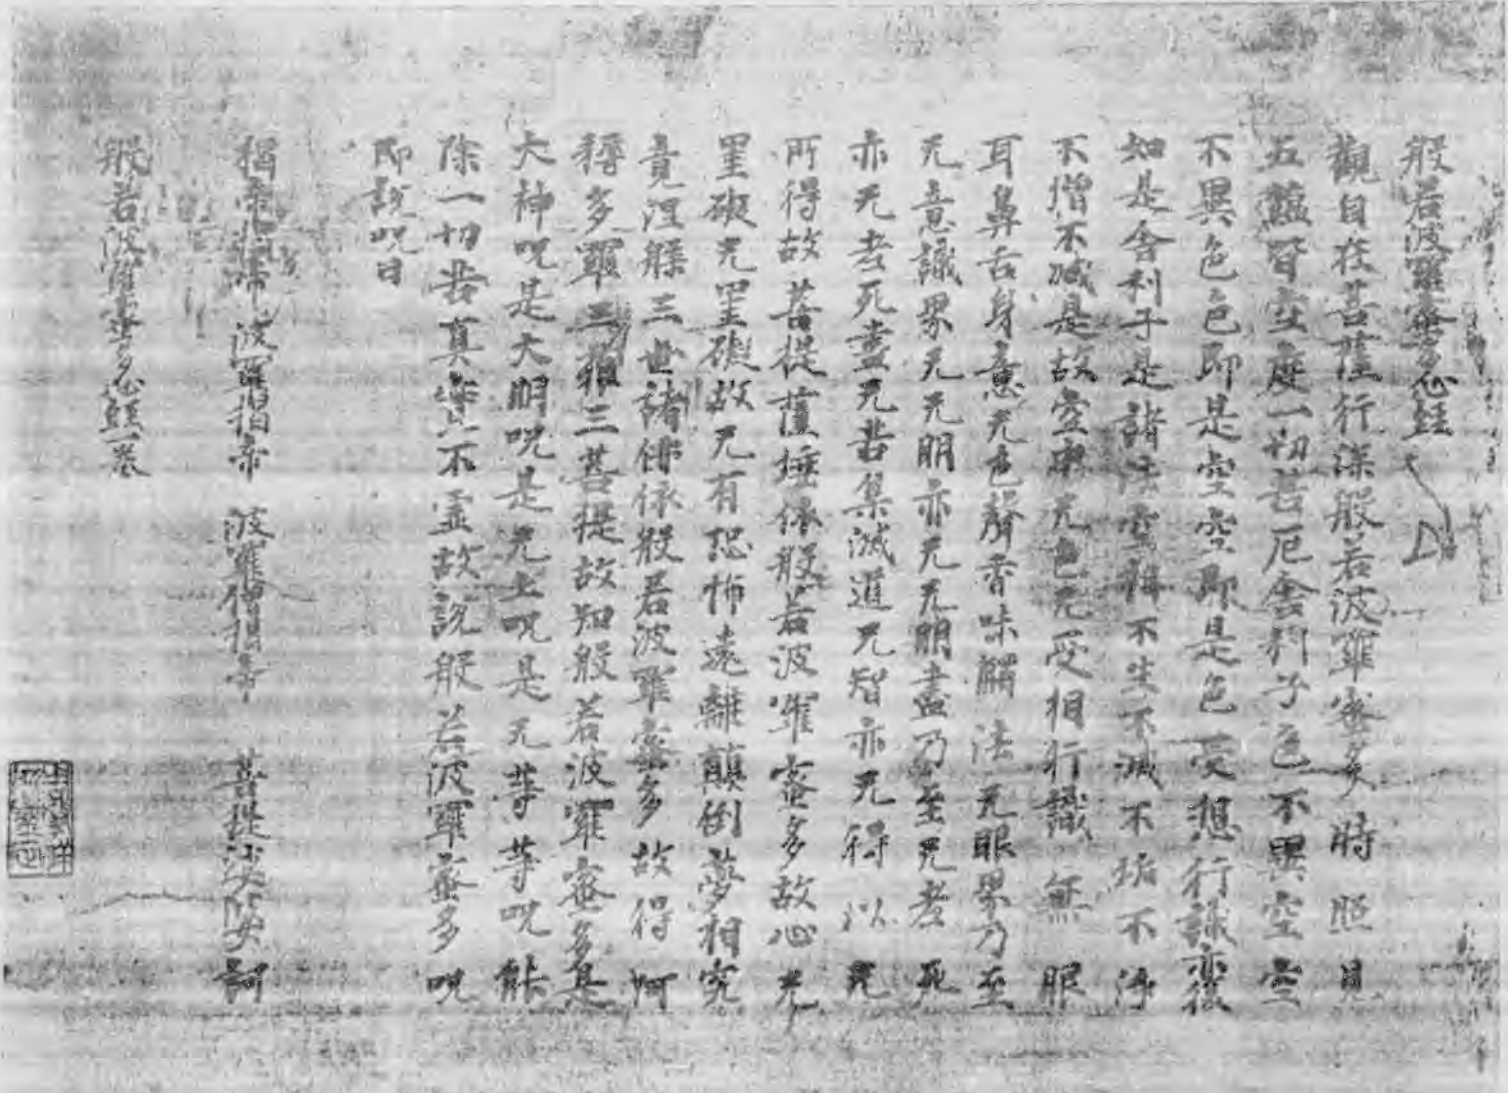 般若波羅蜜多心経
觀自在菩薩行深般若波羅蜜多時照見
五藴皆空度一切苦厄舎利子色不異空空
不異色色即是空空即是色受想行識亦復
如是舎利子是諸法空相不生不滅不垢不淨
不增不減是故空中无色无受相行識無眼
耳鼻舌身意无色聲香味觸法无眼界乃至
无意識界无无明亦无无明盡乃至无老死
亦无老死盡无苦集滅道无智亦无得以无
所得故菩提薩埵依般若波羅蜜多故心无
罣礙无罣礙故无有恐怖遠離顛倒夢相究
竟涅槃三世諸佛依般若波羅蜜多故得阿
耨多羅三藐三菩提故知般若波羅蜜多是
大神呪是大明呪是无上呪是无等等呪能
除一切苦真實不虛故說般若波羅蜜多呪
即說呪曰
揭帝揭帝 波羅揭帝 波羅僧揭帝 菩提娑婆訶
般若波羅蜜多心經一卷